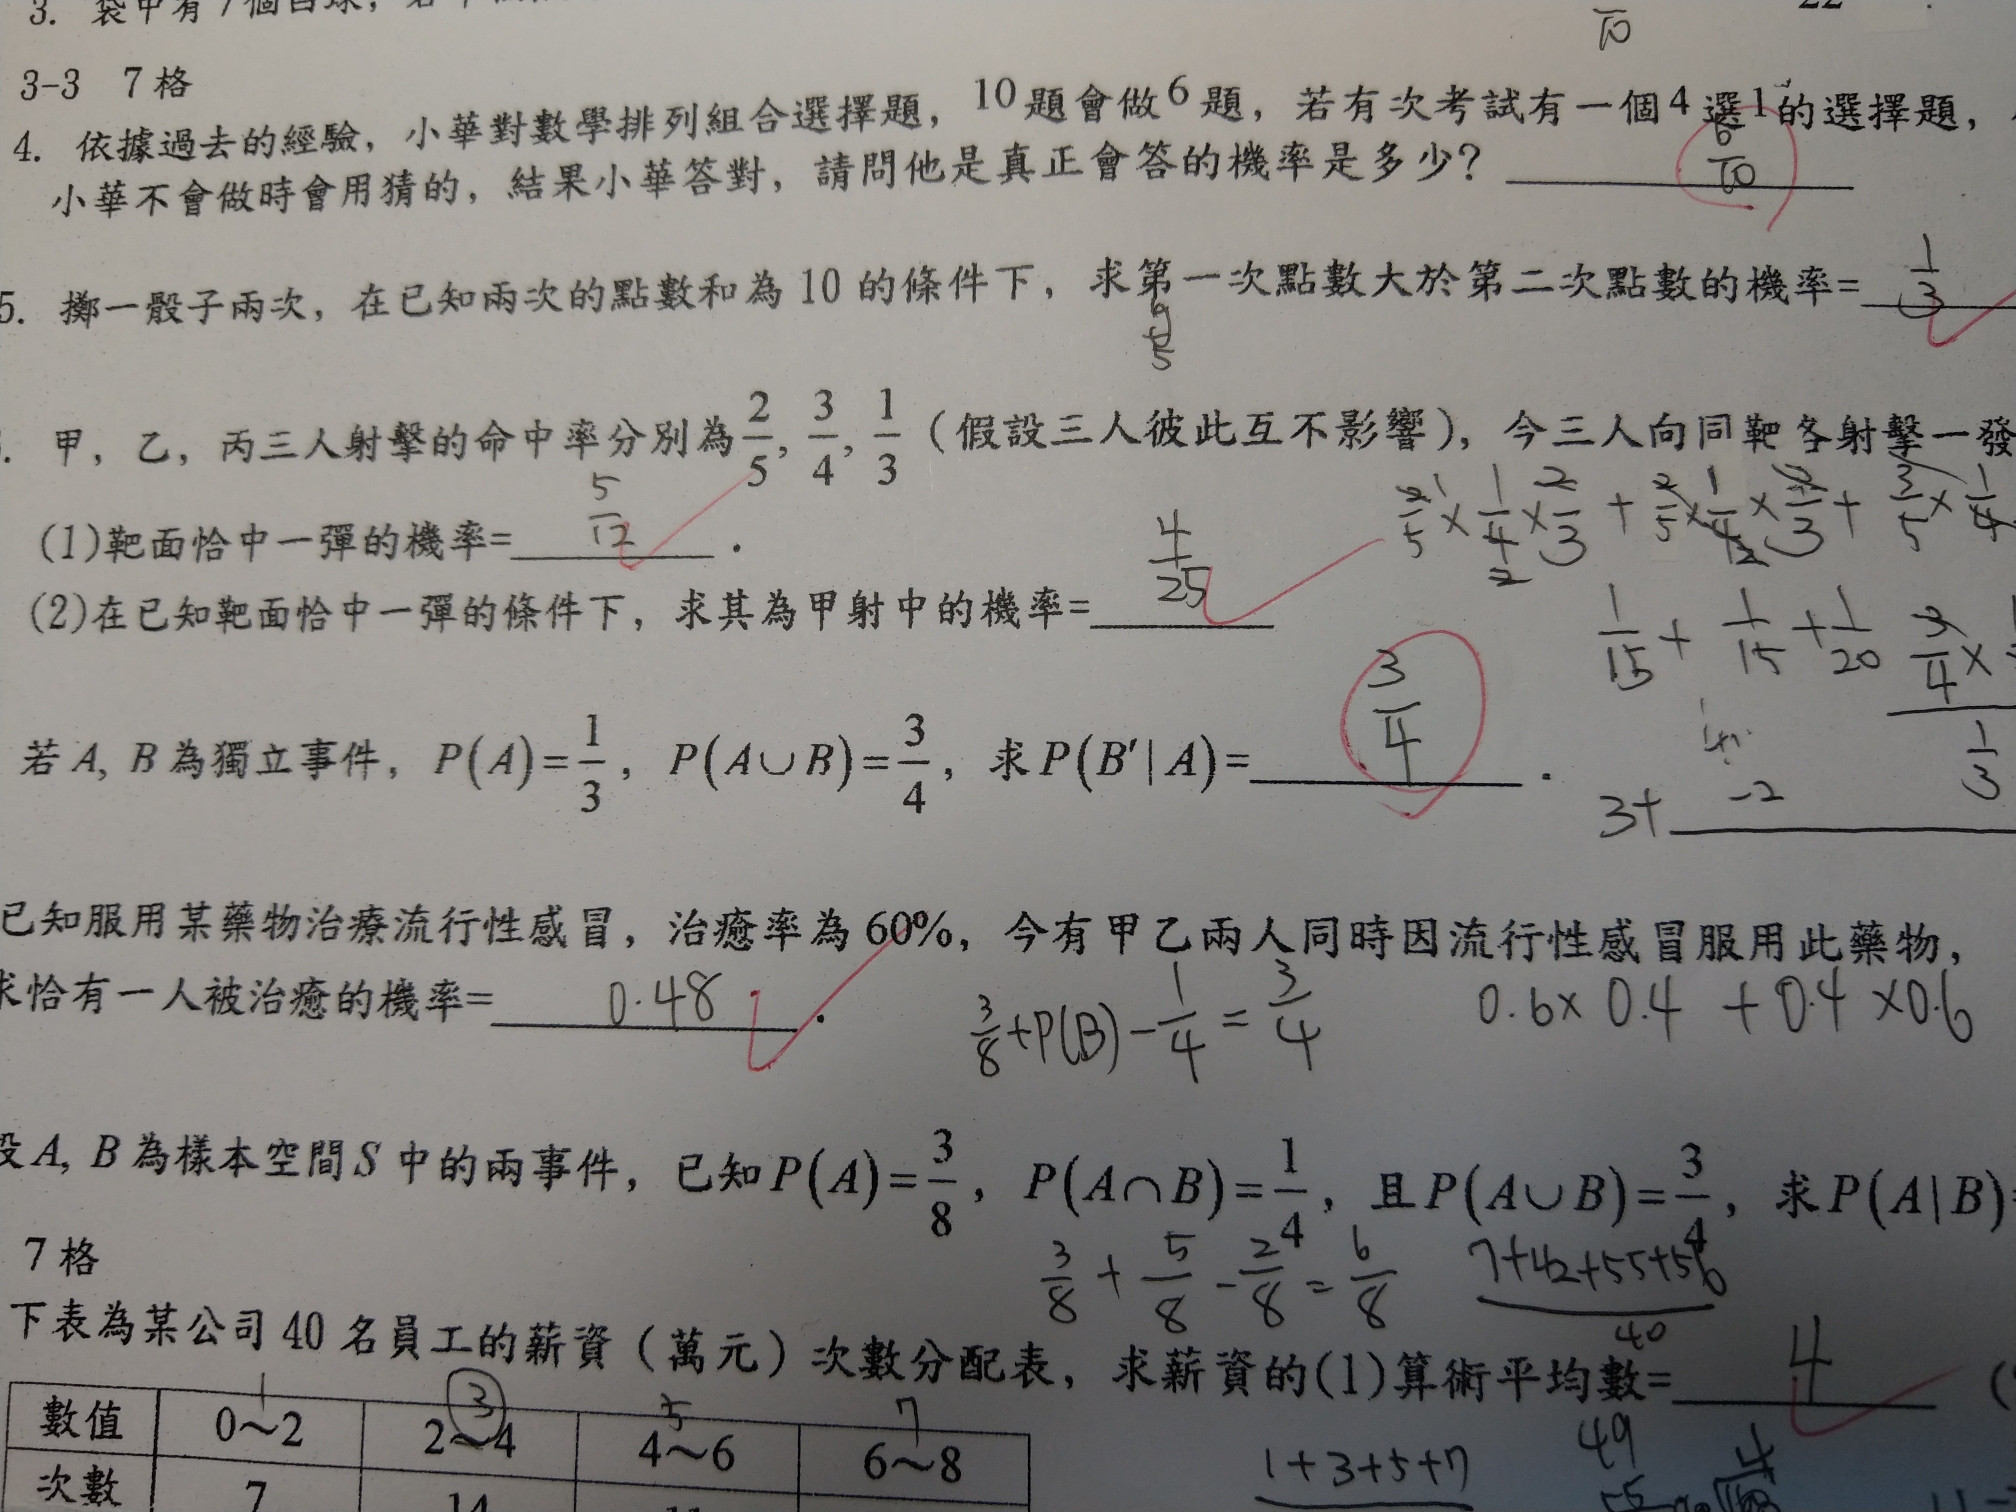 3. 袋中有7個白球，若
10
3-3 7格
4. 依據過去的經驗，小華對數學排列組合選擇題，10題會做6題，若有次考試有一個4選1的選擇題，
小華不會做時會用猜的，結果小華答對，請問他是真正會答的機率是多少？ 6/10
5. 擲一骰子兩次，在已知兩次的點數和為10的條件下，求第一次點數大於第二次點數的機率= 1/3
5
甲，乙，丙三人射擊的命中率分別為2/5, 3/4, 1/3（假設三人彼此互不影響），今三人向同靶各射擊一發
2/5 × 1/4 × 2/3 + 2/5 × 1/4 × 2/3 + 3/5 × 1/4
(1)靶面恰中一彈的機率= 5/12 .
(2)在已知靶面恰中一彈的條件下，求其為甲射中的機率= 4/25
1/15 + 1/15 + 1/20 3/4 ×
1/3
若A, B為獨立事件，P(A)=1/3，P(A∪B)=3/4，求P(B′|A)= 3/4 .
3+ -2
已知服用某藥物治療流行性感冒，治癒率為60%，今有甲乙兩人同時因流行性感冒服用此藥物，
求恰有一人被治癒的機率= 0.48 .
3/8+P(B)-1/4=3/4 0.6×0.4+0.4×0.6
設A, B為樣本空間S中的兩事件，已知P(A)=3/8，P(A∩B)=1/4，且P(A∪B)=3/4，求P(A|B)=
3/8+5/8-2/8=6/8 7+42+55+56
40
7格
下表為某公司40名員工的薪資（萬元）次數分配表，求薪資的(1)算術平均數= 4 (
1 3 5 7
數值 0～2 2～4 4～6 6～8
次數 7 14 11
1+3+5+7 49
55